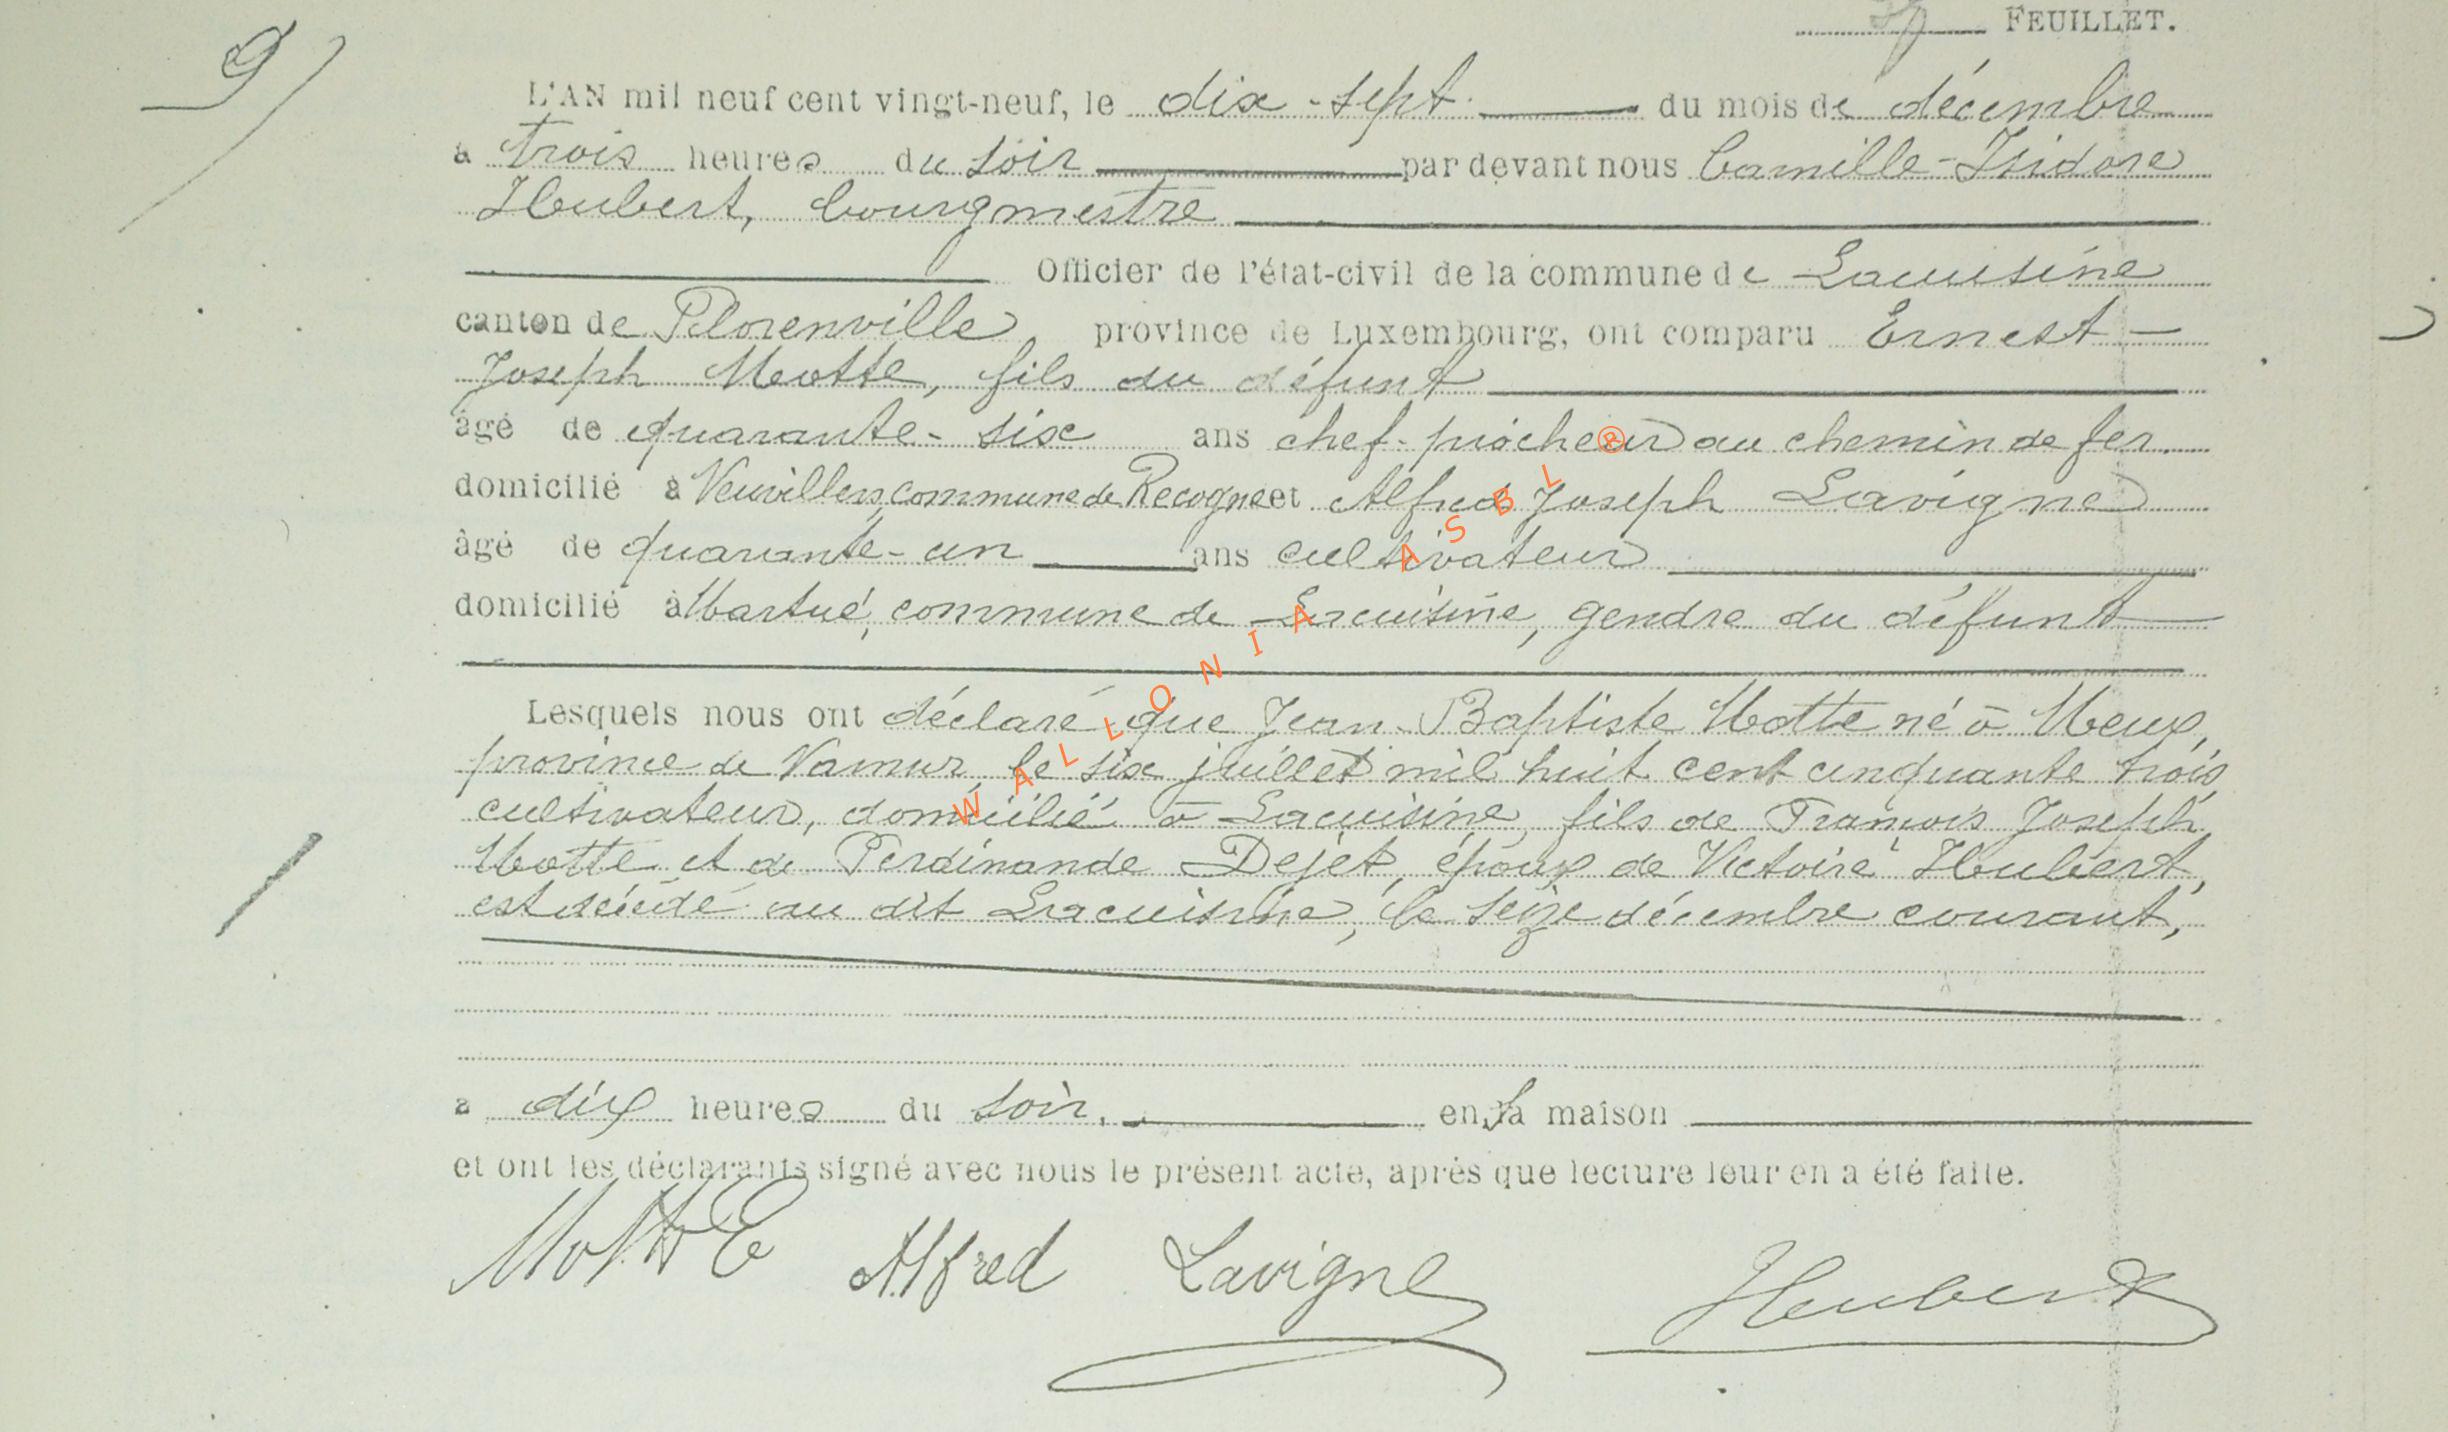 9
FEUILLET.
L'AN mil neuf cent vingt-neuf, le dix-sept du mois de décembre
à trois heures du soir par devant nous Camille-Isidore
Hubert, bourgmestre
Officier de l'état-civil de la commune de Lacuisine
canton de Florenville province de Luxembourg, ont comparu Ernest-
Joseph Motte, fils du défunt
âgé de quarante-six ans chef-piocheur au chemin de fer
domicilié à Neuvillers, commune de Recogne et Alfred Joseph Lavigne
âgé de quarante-un ans cultivateur
domicilié à Martué, commune de Lacuisine, gendre du défunt
Lesquels nous ont déclaré que Jean-Baptiste Motte né à Meux,
province de Namur, le six juillet mil huit cent cinquante trois,
cultivateur, domicilié à Lacuisine, fils de François Joseph
Motte et de Ferdinande Dejet, époux de Victoire Hubert,
est décédé au dit Lacuisine, le seize décembre courant,
à dix heures du soir, en sa maison
et ont les déclarants signé avec nous le présent acte, après que lecture leur en a été faite.
Motte E Alfred Lavigne Hubert
WALLONIA ASBL ®